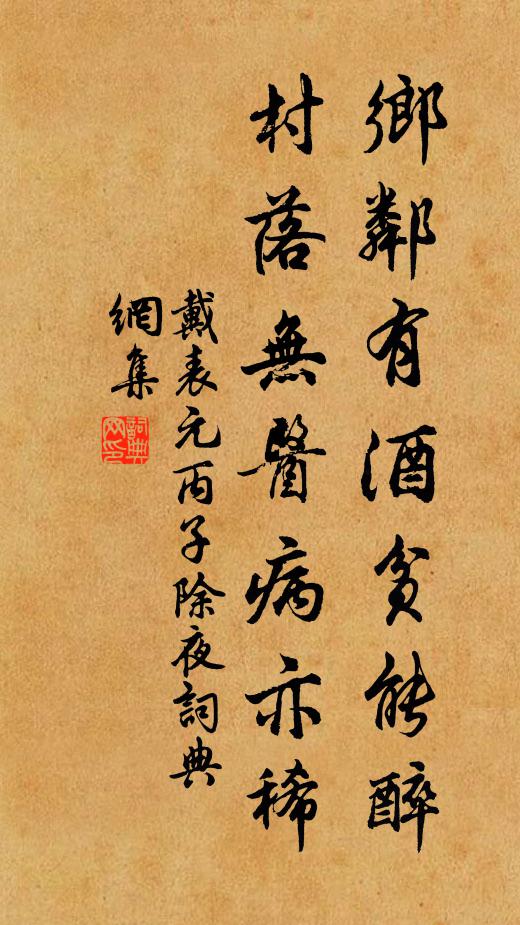 鄉鄰有酒貧能醉
村落無醫病亦稀
戴表元丙子除夜詞典
網集
詞典
网印